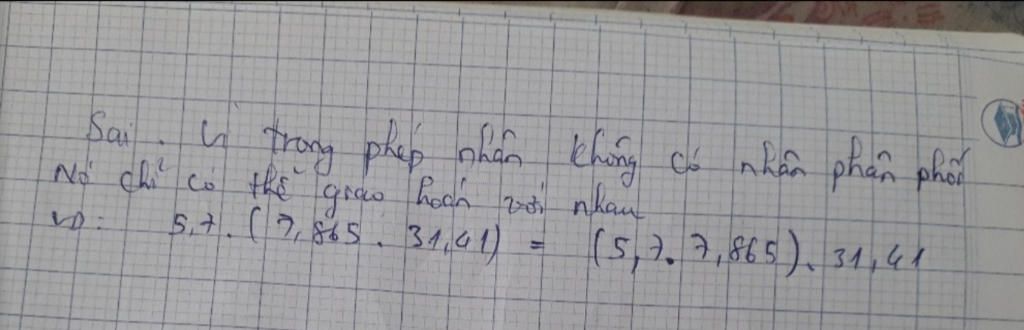 Sai. Vì trong phép nhân không có nhân phân phối
Nó chỉ có thể giao hoán với nhau
VD: 5,7. (7,865. 31,41) = (5,7. 7,865). 31,41